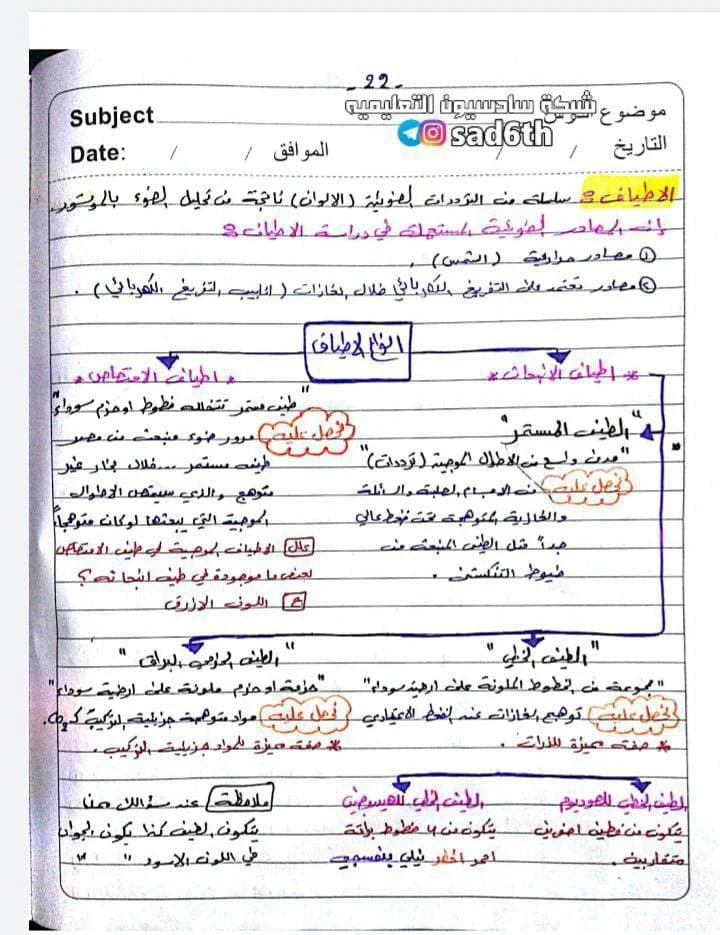 - 22 -
شبكة سادسيون التعليميه
sad6th
Subject
موضوع الدرس
Date: / /
الموافق / /
التاريخ
الاطياف : سلسلة من الترددات الضوئية (الالوان) ناتجة من تحليل الضوء بالموشور.
إن المصادر الضوئية المستعملة في دراسة الاطياف :
① مصادر حرارية (الشمس) .
② مصادر تعتمد على التفريغ الكهربائي خلال الغازات (انابيب التفريغ الكهربائي) .
انواع الاطياف
* اطياف الانبعاث *
"الطيف المستمر"
"مدى واسع من الاطوال الموجية (ترددات)"
نحصل عليه من الاجسام الصلبة والسائلة
والغازية المتوهجة تحت ضغط عالي
جداً مثل الطيف المنبعث من
خيوط التنكستن .
* اطياف الامتصاص *
"طيف مستمر تتخلله خطوط او حزم سوداء"
نحصل عليه مرور ضوء منبعث من مصدر
طيفه مستمر ... خلال بخار غير
متوهج والذي سيمتص الاطوال
الموجية التي يبعثها لو كان متوهجاً
علل الاطياف الموجية في طيف الامتصاص
بعض ما موجودة في طيف انبعاثه؟
ج اللون الازرق
"الطيف الخطي"
"مجموعة من الخطوط الملونة على ارضية سوداء"
نحصل عليه توهج الغازات عند الضغط الاعتيادي
* صفة مميزة للذرات .
"الطيف الحزمي البراق"
"حزمة او حزم ملونة على ارضية سوداء"
نحصل عليه مواد متوهجة جزيئية التركيب كـ CO₂.
* صفة مميزة للمواد جزيئية التركيب .
الطيف الخطي للصوديوم
يتكون من خطين اصفرين
متقاربين .
الطيف الخطي للهيدروجين
يتكون من 4 خطوط براقة
احمر اخضر نيلي بنفسجي
ملاحظة عند سؤالك مما
يتكون الطيف كذا يكون الجواب
في اللون الاسود